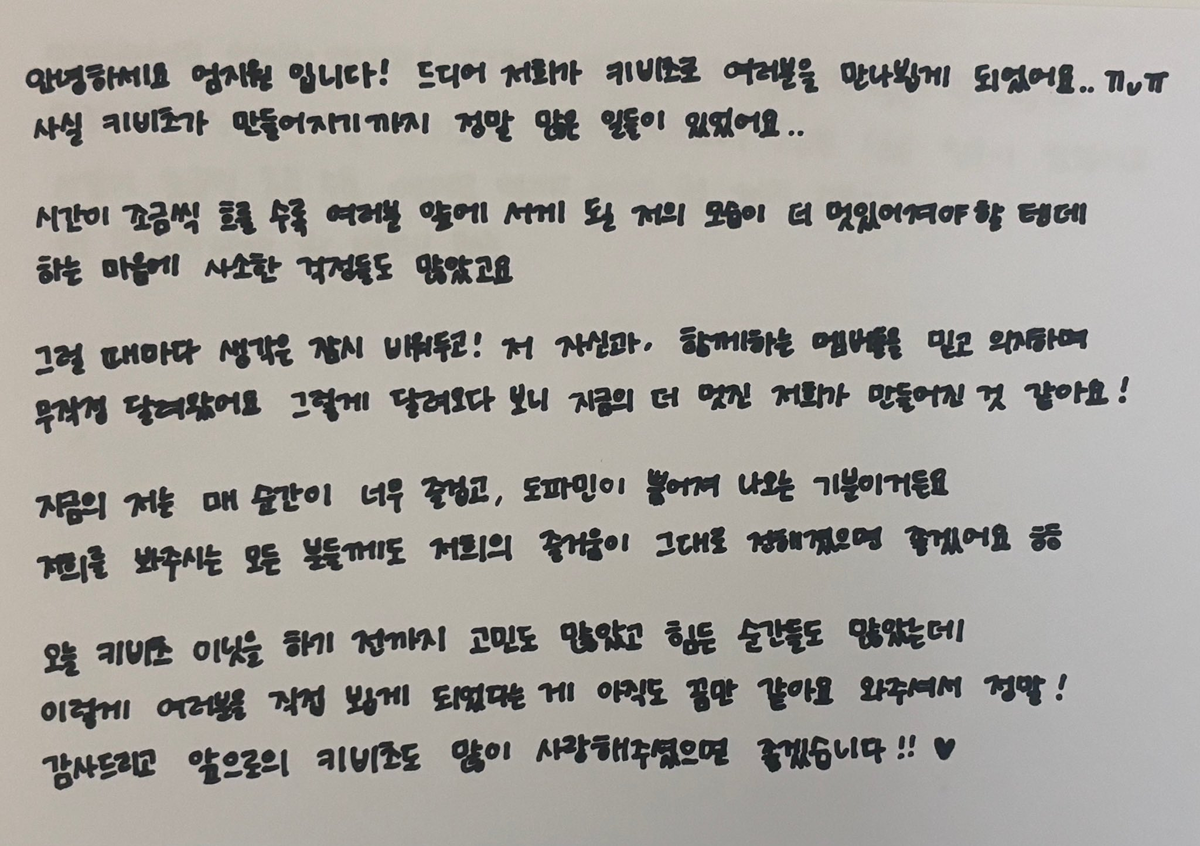 안녕하세요 엄지원 입니다! 드디어 저희가 키비츠로 여러분을 만나뵙게 되었어요.. ㅠㅠ
사실 키비츠가 만들어지기까지 정말 많은 일들이 있었어요..
시간이 조금씩 흐를 수록 여러분 앞에 서게 될 저의 모습이 더 멋있어져야 할 텐데
하는 마음에 사소한 걱정들도 많았고요
그럴 때마다 생각은 잠시 비워두고! 저 자신과, 함께하는 멤버들을 믿고 의지하며
무작정 달려왔어요 그렇게 달려오다 보니 지금의 더 멋진 저희가 만들어진 것 같아요!
지금의 저는 매 순간이 너무 즐겁고, 도파민이 뿜어져 나오는 기분이거든요
저희를 봐주시는 모든 분들께도 저희의 즐거움이 그대로 전해졌으면 좋겠어요 ㅎㅎ
오늘 키비츠 이닛을 하기 전까지 고민도 많았고 힘든 순간들도 많았는데
이렇게 여러분을 직접 뵙게 되었다는 게 아직도 꿈만 같아요 와주셔서 정말!
감사드리고 앞으로의 키비츠도 많이 사랑해주셨으면 좋겠습니다!! ♥